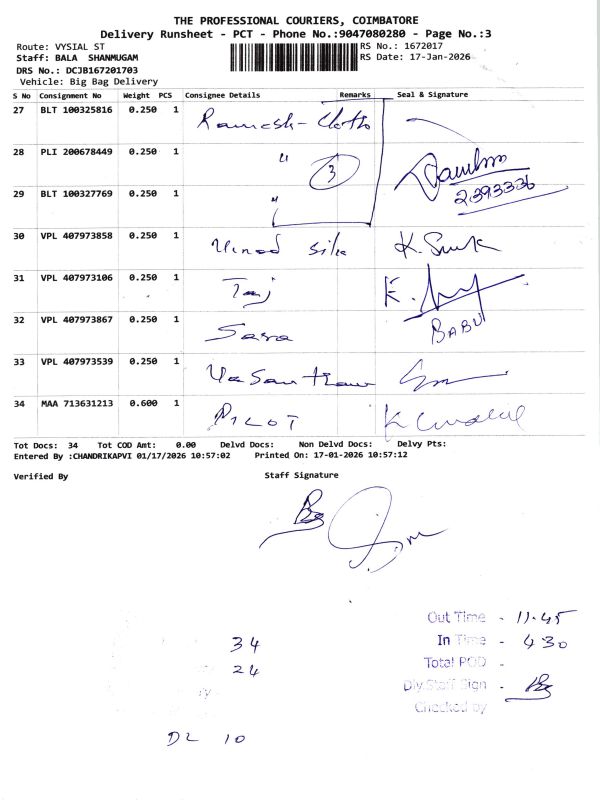 THE PROFESSIONAL COURIERS, COIMBATORE
Delivery Runsheet - PCT - Phone No.:9047080280 - Page No.:3
Route: VYSIAL ST RS No.: 1672017
Staff: BALA SHANMUGAM RS Date: 17-Jan-2026
DRS No.: DCJB167201703
Vehicle: Big Bag Delivery
S No Consignment No Weight PCS Consignee Details Remarks Seal & Signature
27 BLT 100325816 0.250 1 Ramesh - Cloth
28 PLI 200678449 0.250 1 " 3
29 BLT 100327769 0.250 1 " 2393336
30 VPL 407973858 0.250 1 Vinod silk
31 VPL 407973106 0.250 1 Taj
BABU
32 VPL 407973867 0.250 1 Sara
33 VPL 407973539 0.250 1
34 MAA 713631213 0.600 1 PILOT
Tot Docs: 34 Tot COD Amt: 0.00 Delvd Docs: Non Delvd Docs: Delvy Pts:
Entered By :CHANDRIKAPVI 01/17/2026 10:57:02 Printed On: 17-01-2026 10:57:12
Verified By Staff Signature
Out Time - 11.45
34 In Time - 430
24 Total POD -
Dly.Staff Sign -
Checked by
DL 10